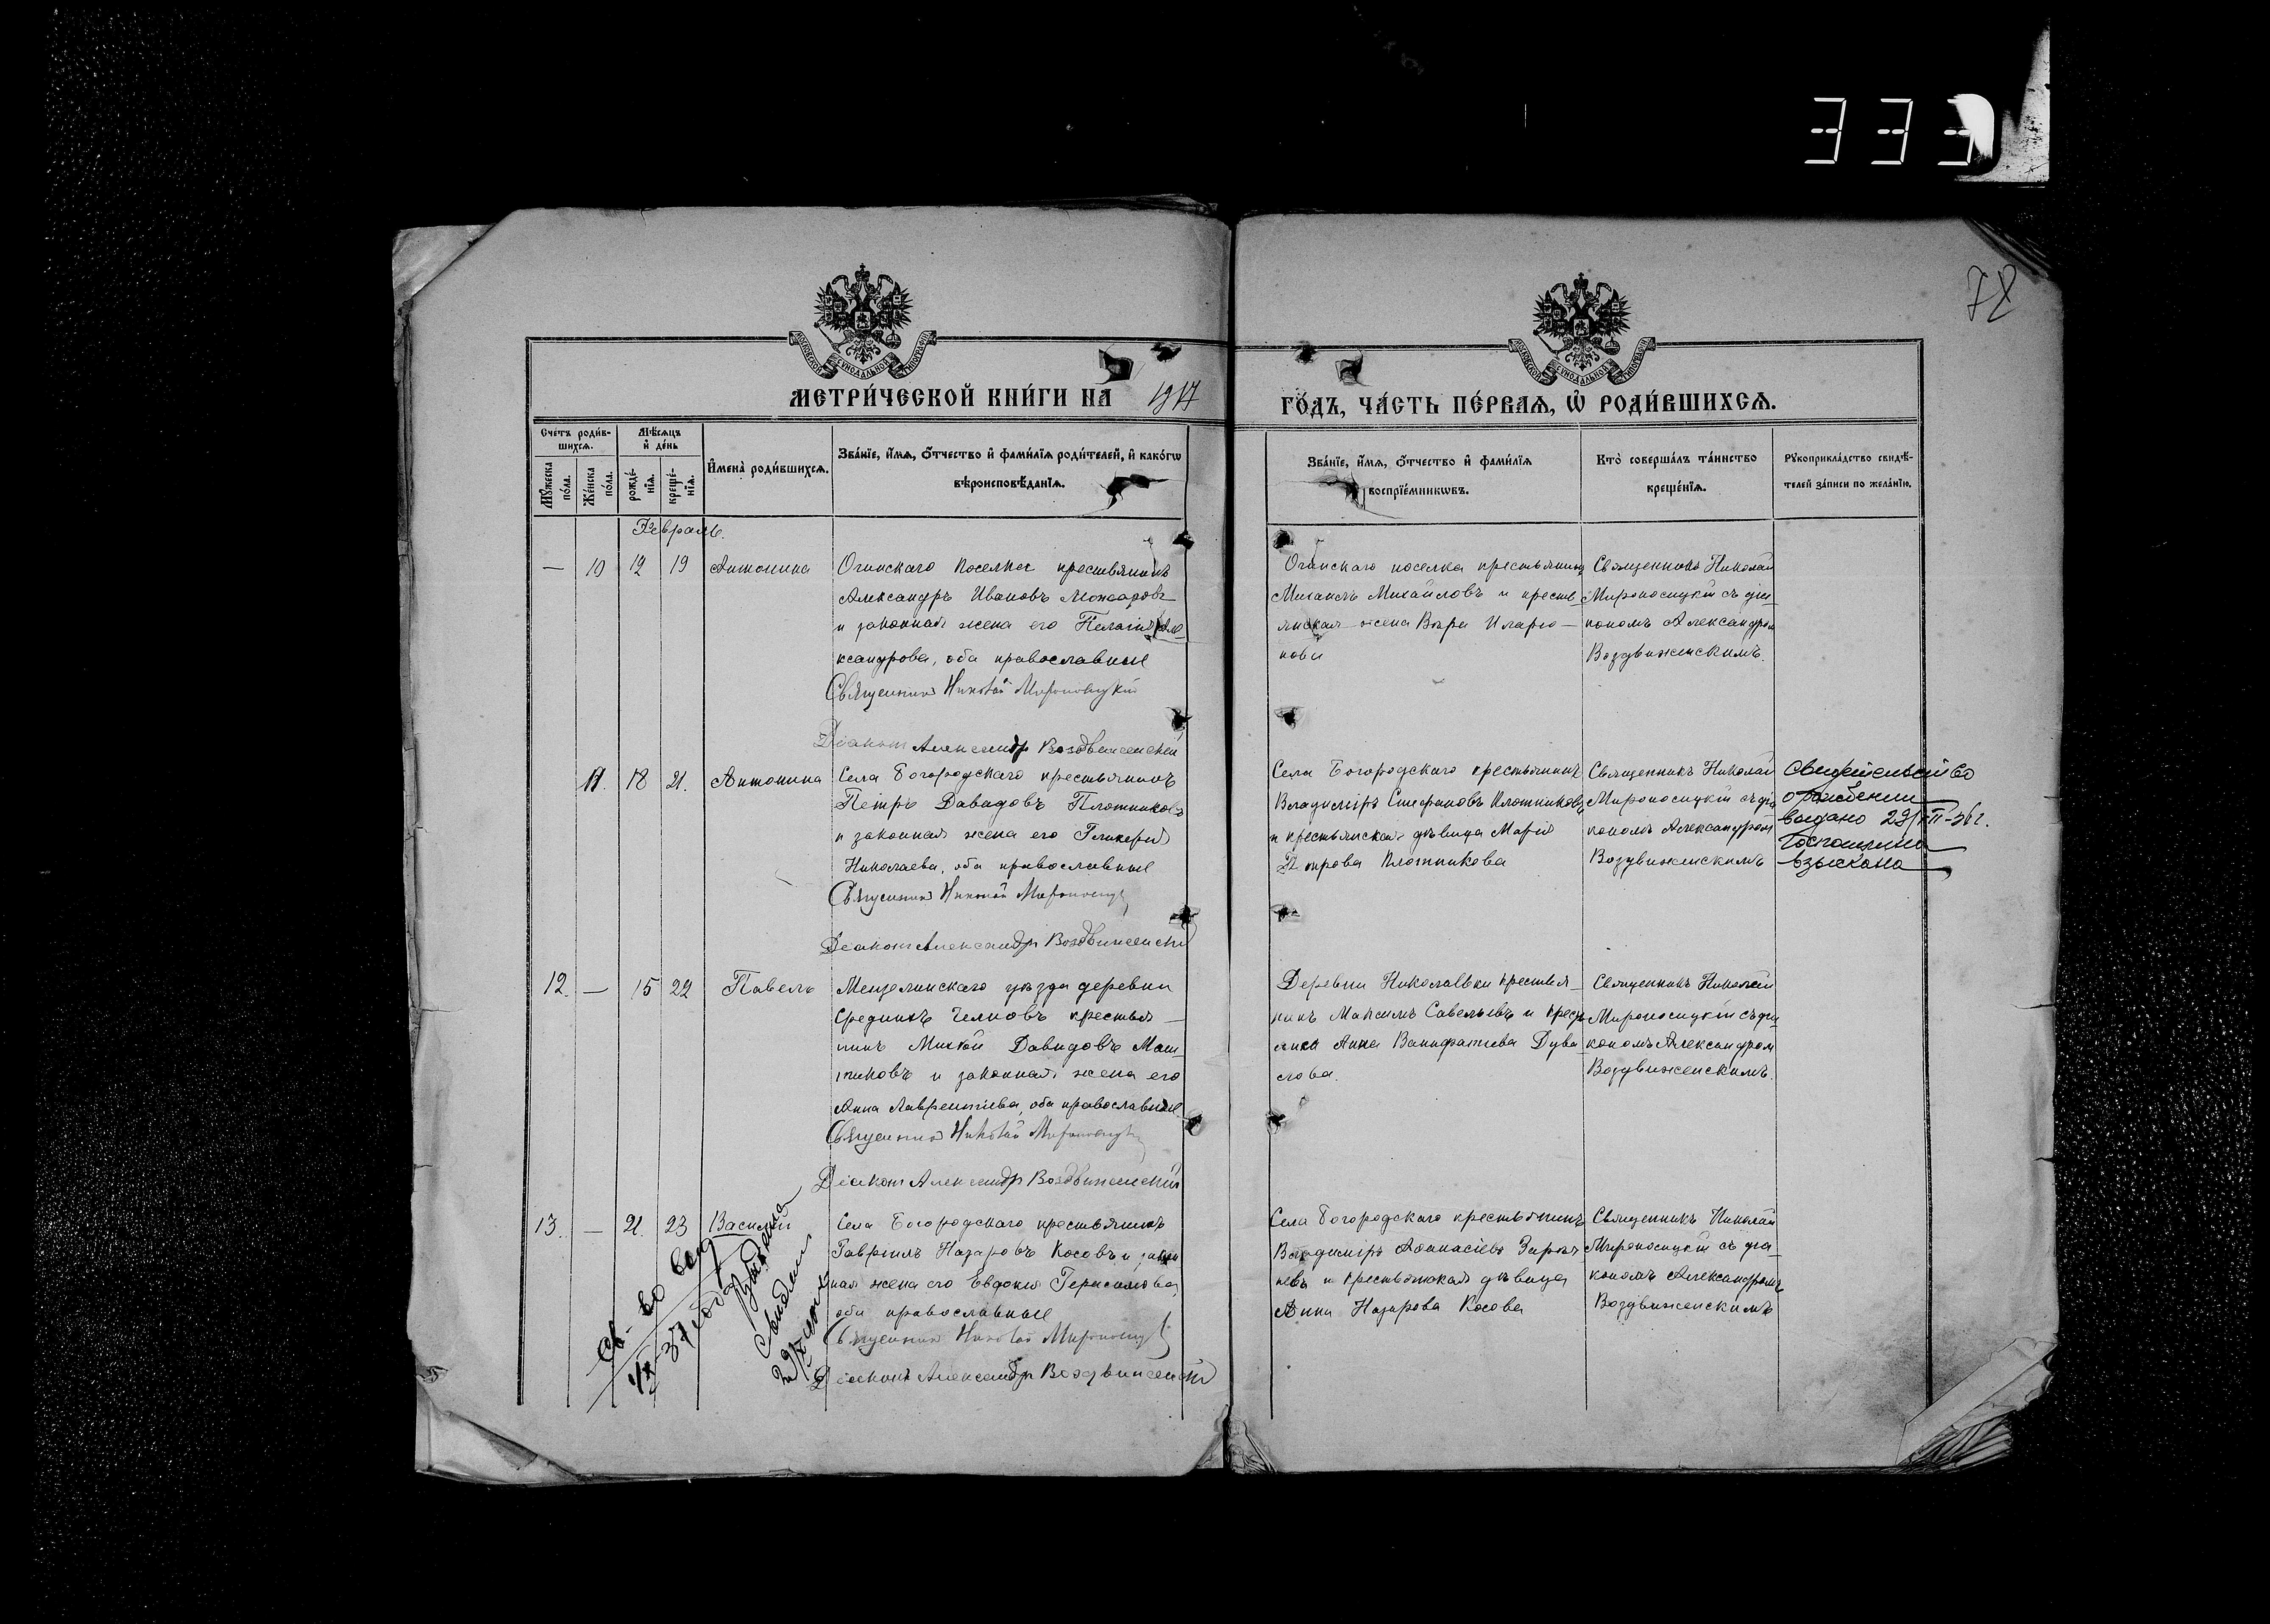 333
78
МОСКОВСКОЙ СѴНОДАЛЬНОЙ ТИПОГРАФІИ
МОСКОВСКОЙ СѴНОДАЛЬНОЙ ТИПОГРАФІИ
МЕТРИ́ЧЕСКОЙ КНИ́ГИ НА 1917
ГО́ДЪ, ЧА́СТЬ ПЕ́РВАѦ, Ѡ҆ РОДИ́ВШИХСѦ.
Сче́тъ роди́в-
шихсѧ.
Мꙋ́жеска по́ла.
Же́нска по́ла.
Мѣ́сѧцъ
и҆ де́нь
рожде́-
нїѧ.
креще́-
нїѧ.
И҆мена̀ роди́вшихсѧ.
Зва́нїе, и҆́мѧ, ѻ҆́тчество и҆ фами́лїѧ роди́телей, и҆ како́гѡ
вѣроисповѣ́данїѧ.
Зва́нїе, и҆́мѧ, ѻ҆́тчество и҆ фами́лїѧ
воспрїе́мникѡвъ.
Кто̀ соверша́лъ та́инство
креще́нїѧ.
Рꙋкоприкла́дство свидѣ́-
телей за́писи по жела́нїю.
Февраль.
— 10 12 19 Антонина
Огинскаго поселка крестьянинъ
Александръ Ивановъ Можаровъ
и законная жена его Пелагія Але-
ксандрова, оба православные
Священникъ Николай Мироносицкій
Діаконъ Александръ Воздвиженскій
Огинскаго поселка крестьянинъ
Михаилъ Михайловъ и кресть-
янская жена Вѣра Иларіо-
нова
Священникъ Николай
Мироносицкій съ діа-
кономъ Александром
Воздвиженскимъ.
11. 18 21. Антонина
Села Богородскаго крестьянинъ
Петръ Давидовъ Плотниковъ
и законная жена его Гликерія
Николаева, оба православные
Священникъ Николай Мироносиц
Діаконъ Александръ Воздвиженскій
Села Богородскаго крестьянинъ
Владиміръ Стефановъ Плотниковъ
и крестьянская дѣвица Марія
Петрова Плотникова
Священникъ Николай
Мироносицкій съ діа
кономъ Александром
Воздвиженскимъ
Свидетельство
о рождении
выдано 29/XII-36 г.
Госпошлина
взыскана
12. — 15 22 Павелъ
Мензелинскаго уѣзда деревни
Среднихъ Челновъ крестья-
нинъ Давидовъ
и законная жена его
Анна Лаврентіева, оба православные
Священникъ Николай Мироносиц
Діаконъ Александръ Воздвиженскій
Деревни Николаевки крестья-
нинъ Максимъ Савельевъ и крест
янка Анна Вонифатіева Дува
лова.
Священникъ Николай
Мироносицкій съ діа
кономъ Александром
Воздвиженскимъ.
13. — 21. 23 Василій
Села Богородскаго крестьянинъ
Гавріилъ Назаровъ Косовъ и закон
ная жена его Евдокія Герасимова,
оба православные
Священникъ Николай Мироносиц
Діаконъ Александръ Воздвиженскій
Села Богородскаго крестьянинъ
Владиміръ Аѳанасіевъ
и крестьянская дѣвица
Анна Назарова Косова
Священникъ Николай
Мироносицкій съ діа-
кономъ Александромъ
Воздвиженскимъ
Св-во выд
37 года